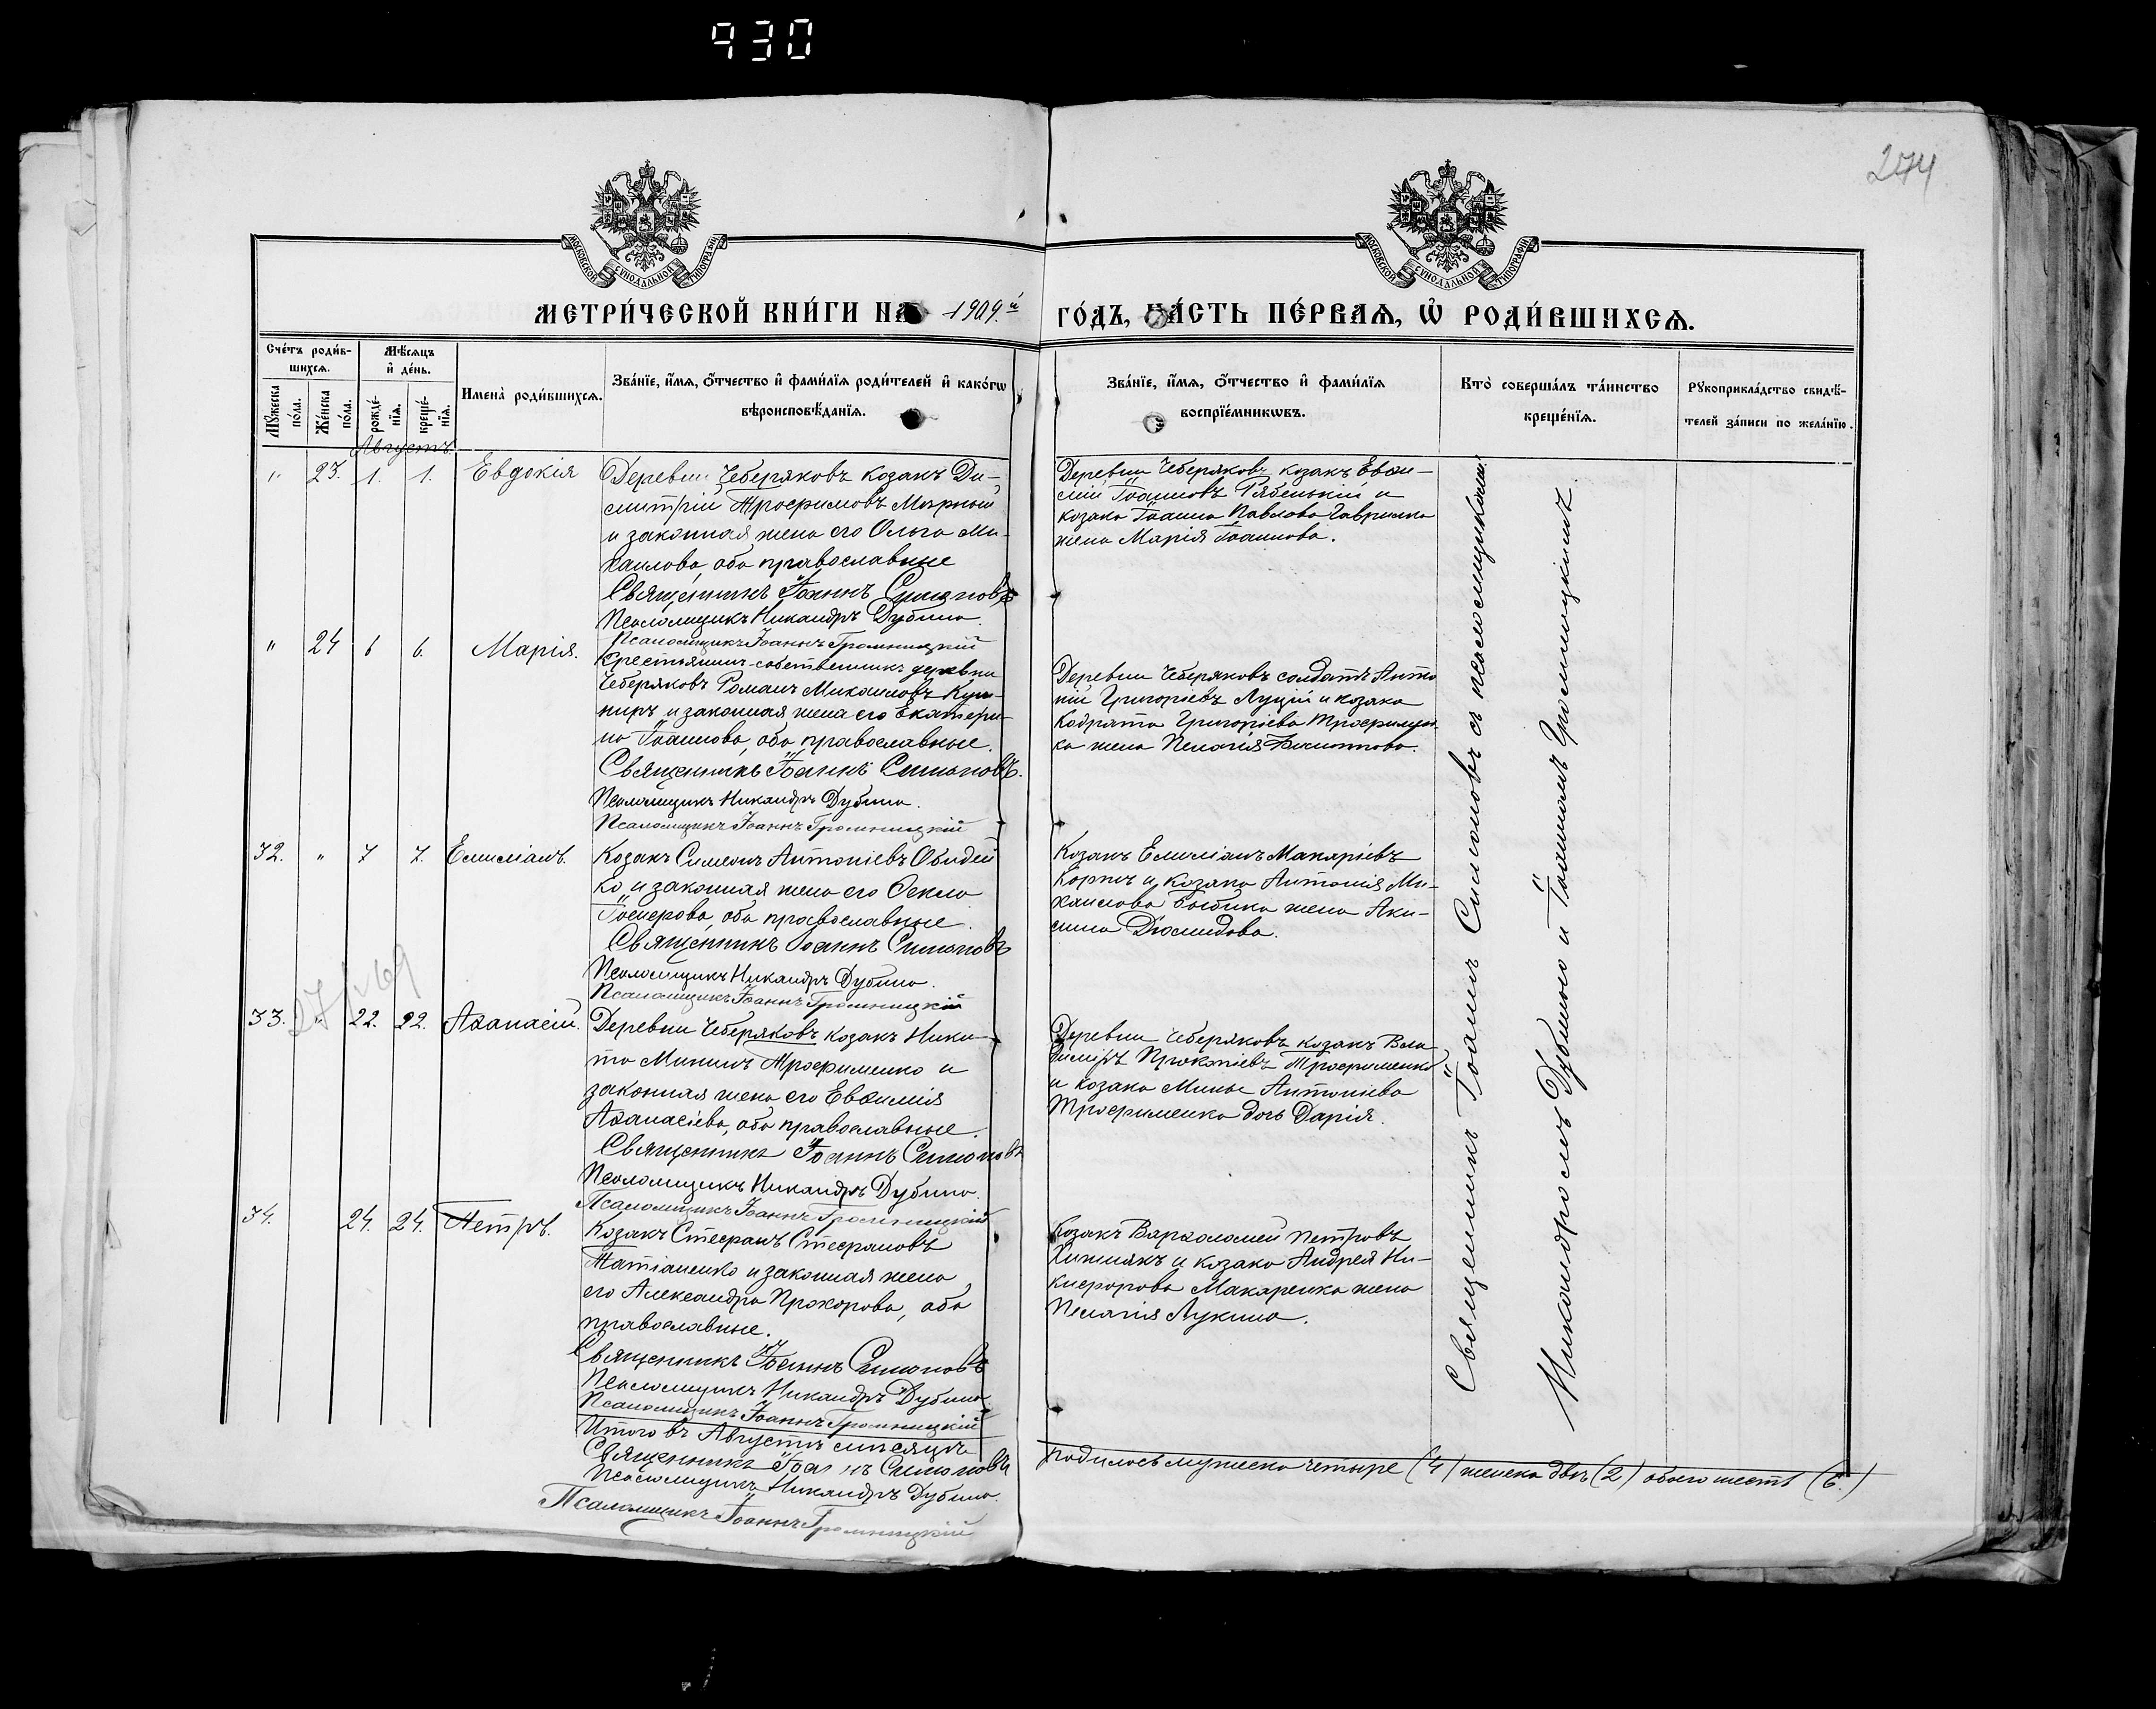 930
274
МОСКОВСКОЙ СѴНОДАЛЬНОЙ ТИПОГРАФІИ
МОСКОВСКОЙ СѴНОДАЛЬНОЙ ТИПОГРАФІИ
МЕТРИ́ЧЕСКОЙ КНИ́ГИ НА 1909.й ГО́ДЪ, ЧА́СТЬ ПЕ́РВАѦ, Ѡ҆ РОДИ́ВШИХСѦ.
Сче́тъ роди́в-
шихсѧ.
Мꙋ́жеска
по́ла.
Же́нска
по́ла.
Мѣ́сѧцъ
и҆ де́нь.
рожде́-
нїѧ.
креще́-
нїѧ.
Имена̀ роди́вшихсѧ.
Зва́нїе, и҆́мѧ, ѻ҆́тчество и҆ фами́лїѧ роди́телей и҆ како́гѡ
вѣроисповѣ́данїѧ.
Зва́нїе, и҆́мѧ, ѻ҆́тчество и҆ фами́лїѧ
воспрїе́мникѡвъ.
Кто̀ соверша́лъ та́инство
креще́нїѧ.
Рꙋкоприкла́дство свидѣ́-
телей за́писи по жела́нїю.
Августъ.
" 23. 1. 1. Евдокія
Деревни Чеберяковъ козакъ Ди-
митрій Трофимовъ Мирный
и законная жена его Ольга Ми-
хаилова, оба православные
Священникъ Іоаннъ Симоновъ
Псаломщикъ Никандръ Дубина.
Псаломщикъ Іоаннъ Громницкій
Деревни Чеберяковъ козакъ Евѳи-
мій Іоанновъ Рябенькій и
козака Іоанна Павлова Гаврилка
жена Марія Іоаннова.
" 24 6 6. Марія.
Крестьянинъ-собственникъ деревни
Чеберяковъ Романъ Михаиловъ Куш-
ниръ и законная жена его Екатери-
на Іоаннова, оба православные.
Священникъ Іоаннъ Симоновъ.
Псаломщикъ Никандръ Дубина.
Псаломщикъ Іоаннъ Громницкій
Деревни Чеберяковъ солдатъ Анто
ній Григоріевъ Луцій и козака
Кодрата Григоріева Трофимен-
ка жена Пелагія
32. " 7 7. Емиліанъ.
Козакъ Симеонъ Антоніевъ Обидей
ко и законная жена его Ѳекла
Іосифова, оба православные.
Священникъ Іоаннъ Симоновъ
Псаломщикъ Никандръ Дубина.
Псаломщикъ Іоаннъ Громницкій
Козакъ Емиліанъ Макаріевъ
и козака Антонія Ми-
хаилова Бабика жена Аки-
лина Діомидова.
33. " 22. 22. Аѳанасій.
Деревни Чеберяковъ козакъ Ники-
та Мининъ Трофименко и
законная жена его Евѳимія
Аѳанасіева, оба православные.
Священникъ Іоаннъ Симоновъ
Псаломщикъ Никандръ Дубина.
Псаломщикъ Іоаннъ Громницкій
Деревни Чеберяковъ козакъ Вла
димиръ Прокопіевъ Трофименко
и козака Мины Антоніева
Трофименка дочь Дарія.
34. 24. 24. Петръ.
Козакъ Стефанъ Стефановъ
Татіаненко и законная жена
его Александра Прохорова, оба
православные.
Священникъ Іоаннъ Симоновъ
Псаломщикъ Никандръ Дубина
Псаломщикъ Іоаннъ Громницкій
Козакъ Варѳоломей Петровъ
Хижнякъ и козака Андрея Ни-
кифорова Макаренка жена
Пелагія Лукина.
Священникъ Іоаннъ Симоновъ съ псаломщиками:
Никандромъ Дубиною и Іоанномъ Громницкимъ.
Итого въ Августѣ мѣсяцѣ родилось мужеска четыре (4) женска двѣ (2) обоего шесть (6.)
Священникъ Іоаннъ Симоновъ
Псаломщикъ Никандръ Дубина.
Псаломщикъ Іоаннъ Громницкій